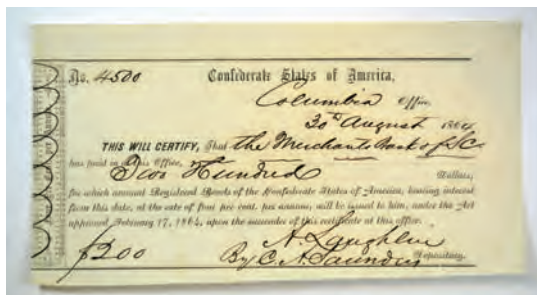 No. 4500 Confederate States of America,
Columbia Office,
30th August 1864
THIS WILL CERTIFY, That the Merchants Bank of SC
has paid in at this Office, Two Hundred Dollars,
for which amount Registered Bonds of the Confederate States of America, bearing interest
from this date, at the rate of four per cent. per annum, will be issued to him, under the Act
approved February 17, 1864, upon the surrender of this certificate at this office.
$200 A. Laughlin
By C. A. Saunders Depositary.